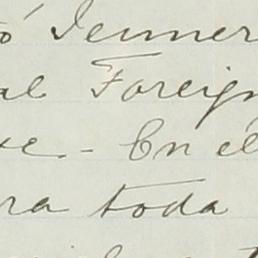 ó Jenner
al Foreign
se. - En él
ra toda